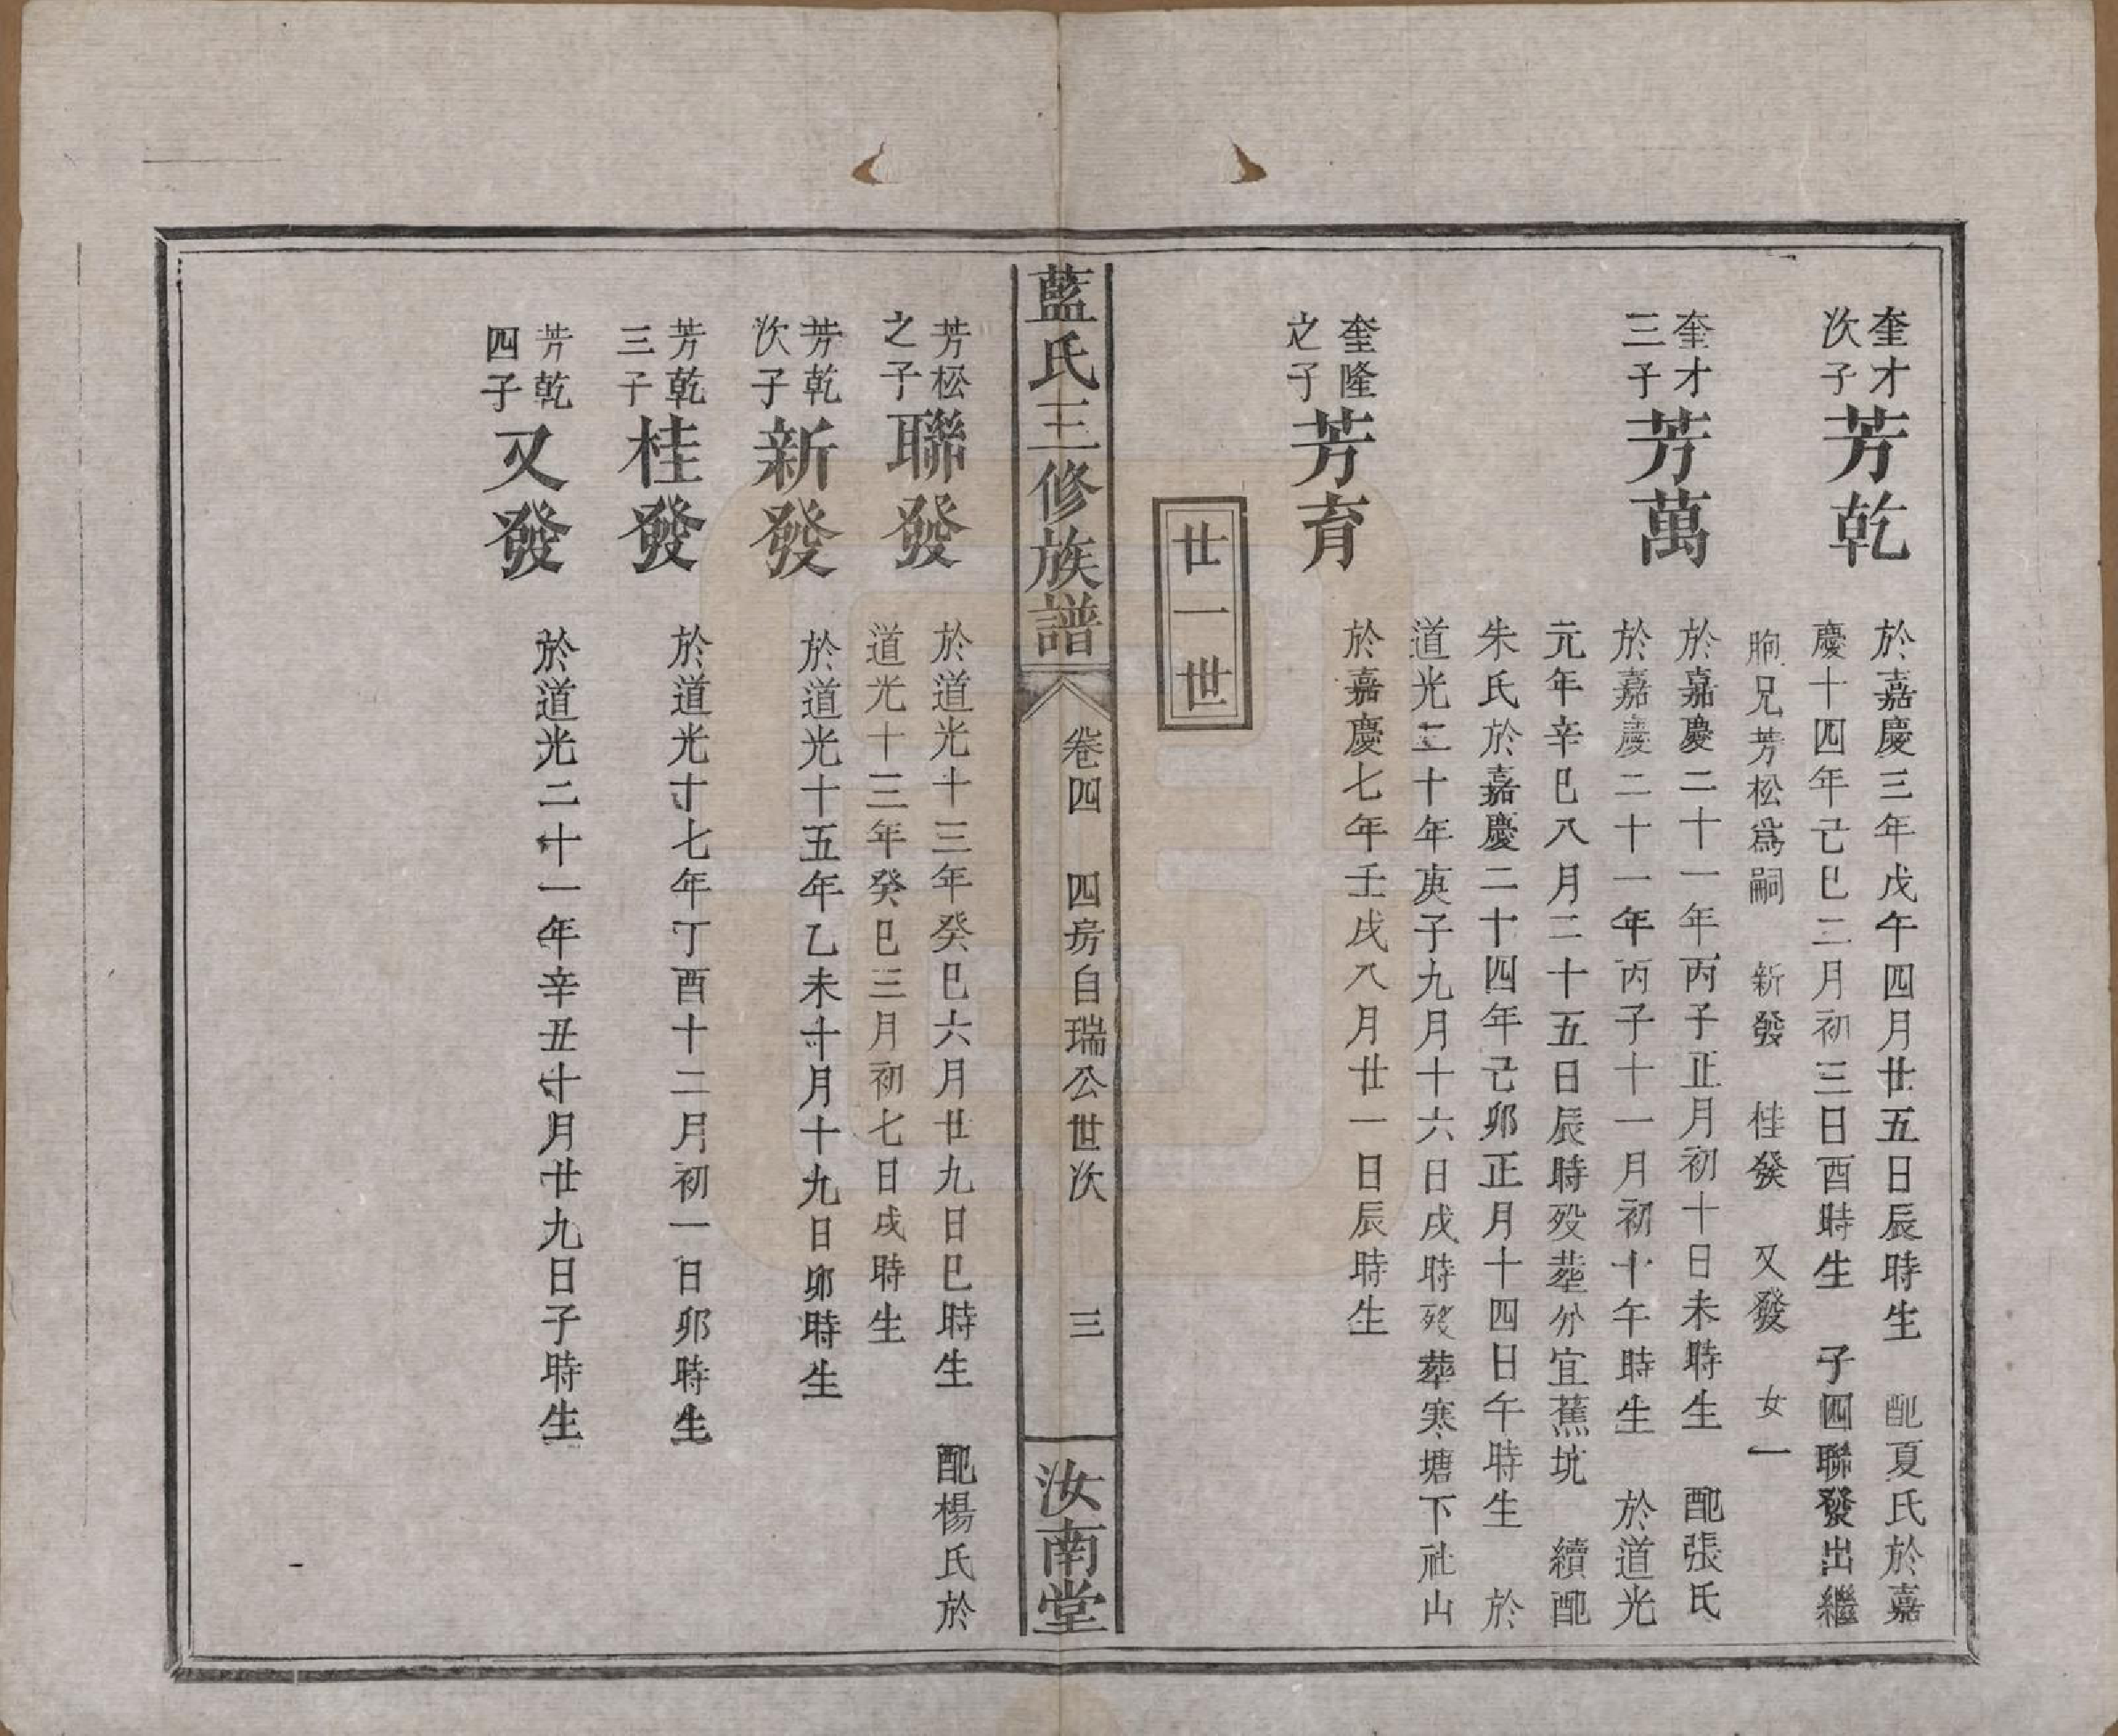 奎才
次子
芳乾
於嘉慶三年戊午四月廿五日辰時生 配夏氏於嘉
慶十四年己巳二月初三日酉時生 子四聯發出繼
胞兄芳松爲嗣 新發 桂發 又發 女一
奎才
三子
芳萬
於嘉慶二十一年丙子正月初十日未時生 配張氏
於嘉慶二十一年丙子十一月初十午時生 於道光
元年辛巳八月二十五日辰時歿葬分宜蕉坑 續配
朱氏於嘉慶二十四年己卯正月十四日午時生 於
道光二十年庚子九月十六日戌時歿葬寒塘下社山
奎隆
之子
芳育
於嘉慶七年壬戌八月廿一日辰時生
廿一世
藍氏三修族譜
卷四 四房自瑞公世次 三
汝南堂
芳松
之子
聯發
於道光十三年癸巳六月廿九日巳時生 配楊氏於
道光十三年癸巳三月初七日戌時生
芳乾
次子
新發
於道光十五年乙未十月十九日卯時生
芳乾
三子
桂發
於道光十七年丁酉十二月初一日卯時生
芳乾
四子
又發
於道光二十一年辛丑十月廿九日子時生